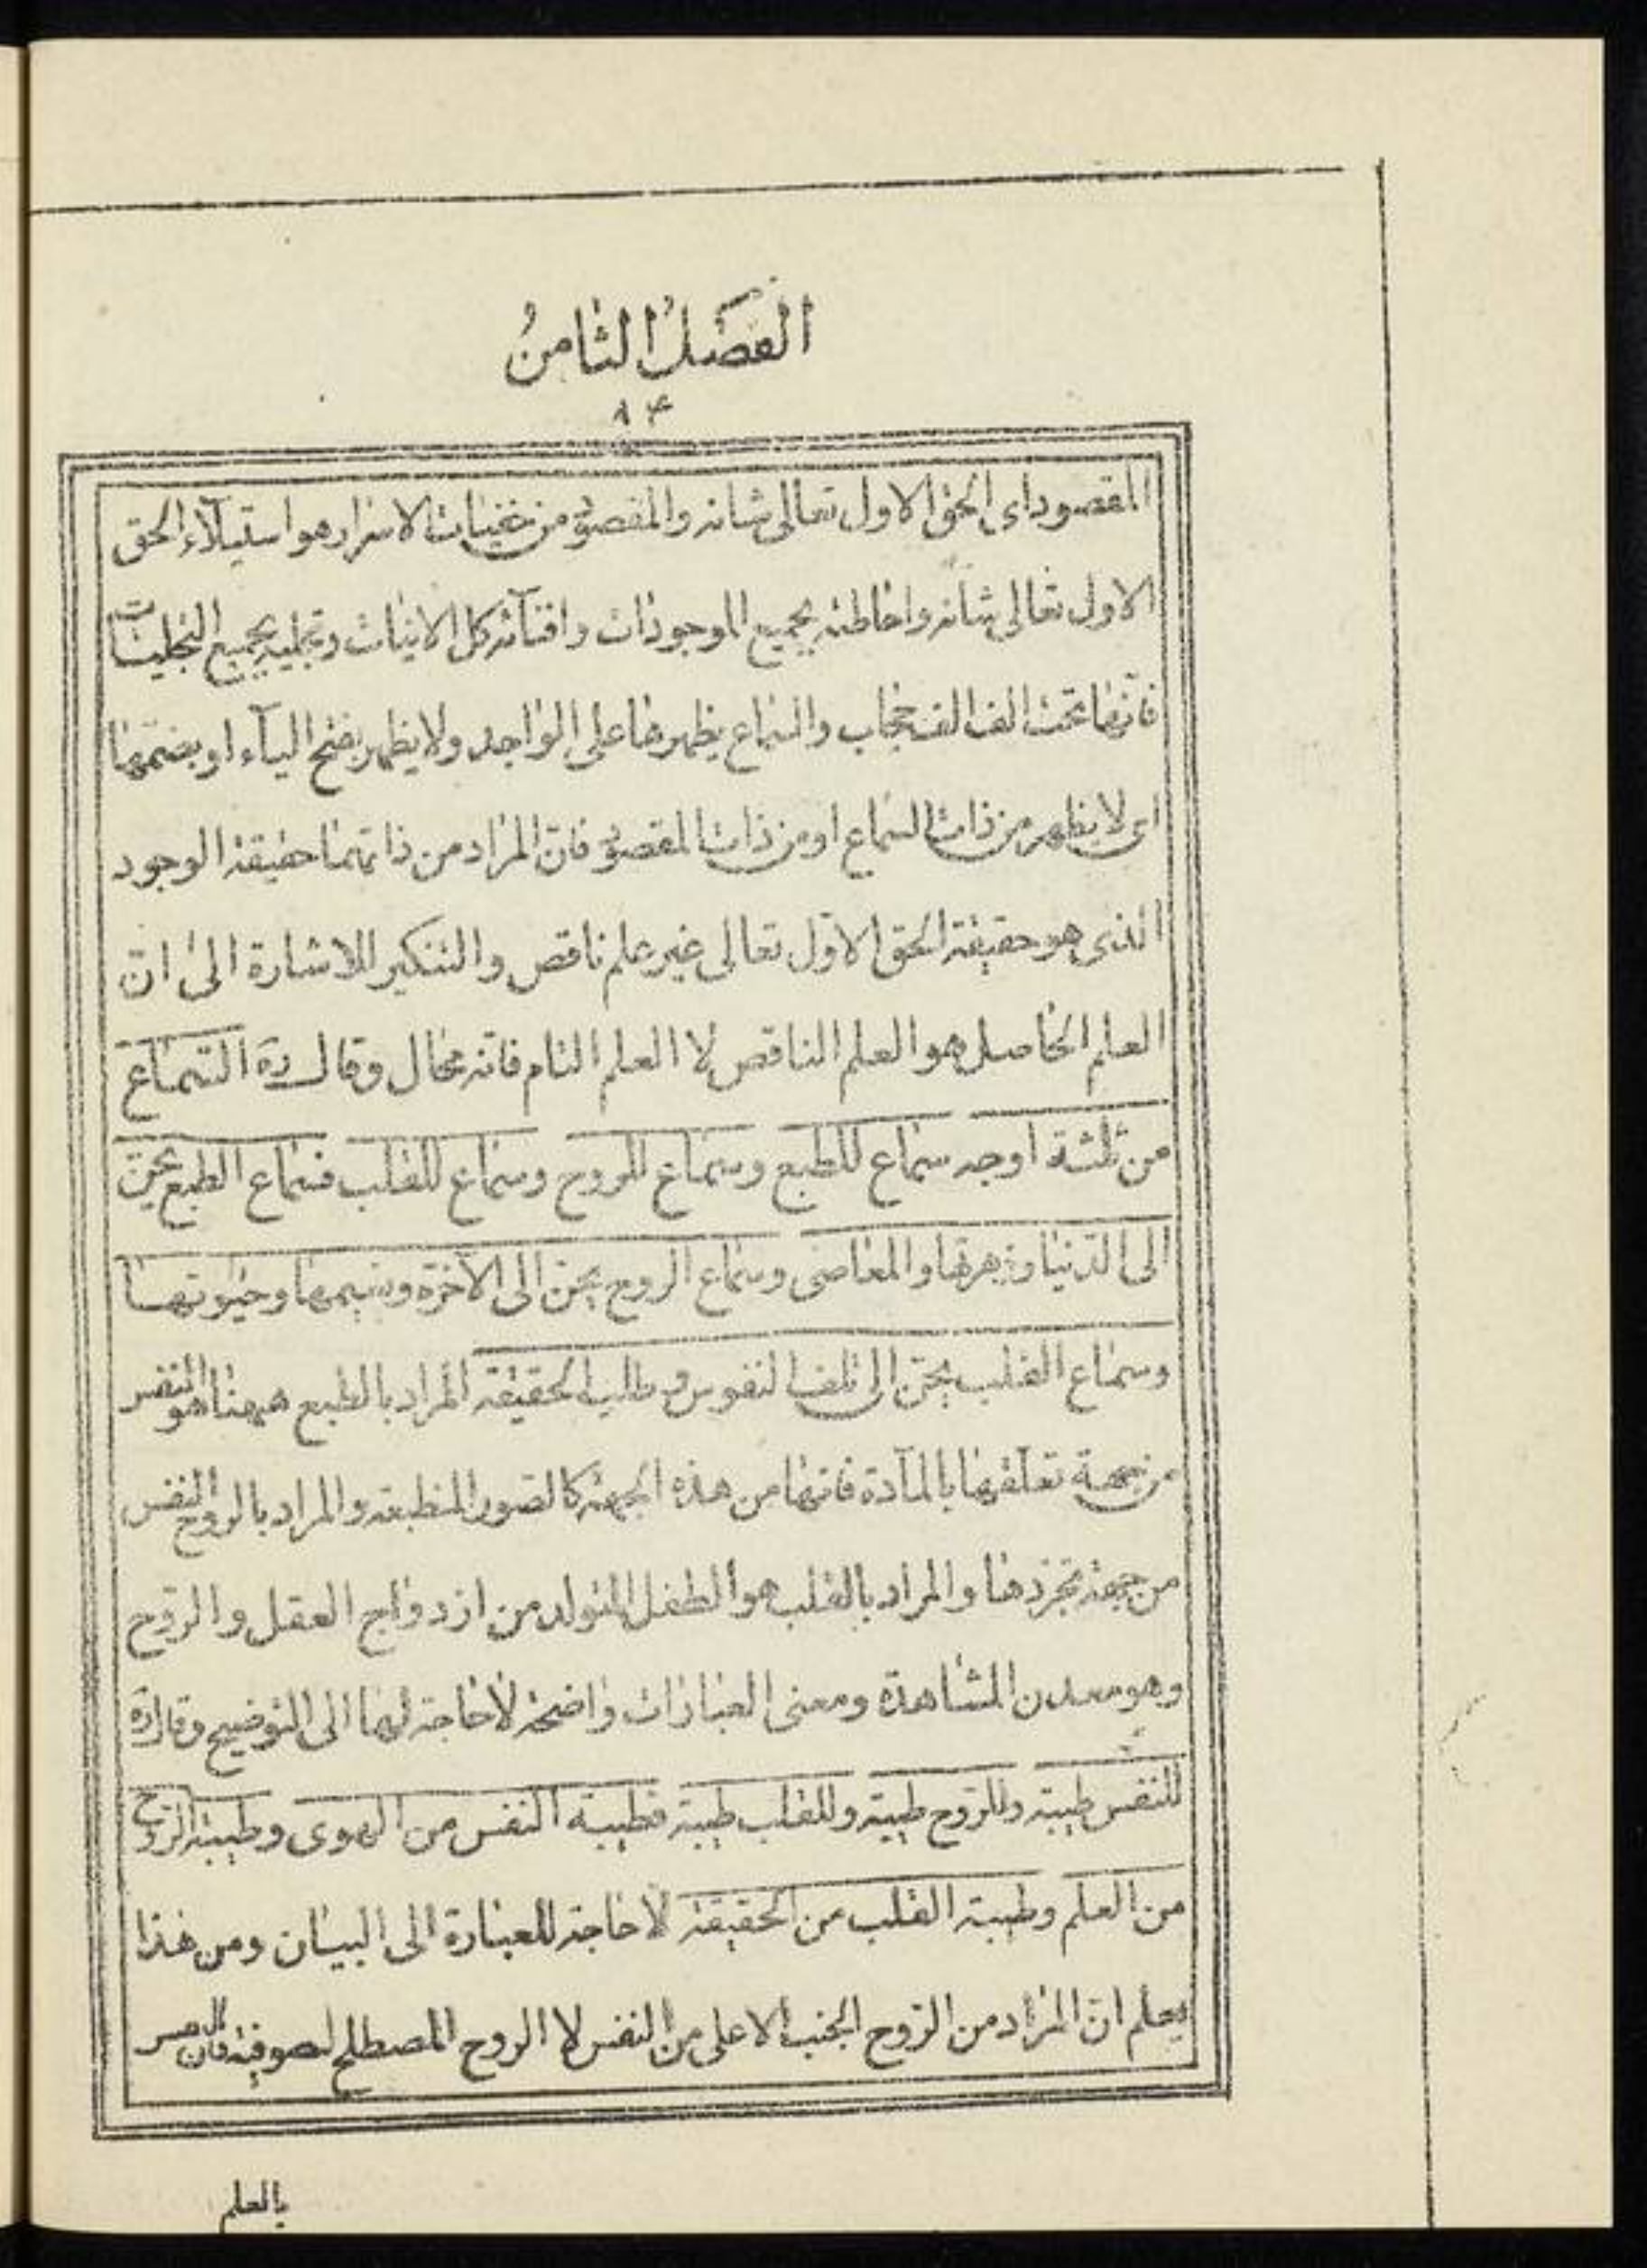 الفَصَلُ الثامنُ
٨۴
المقصود اى الحق الاول تعالى شانه والمقصود من غيبات الاسرار هو استيلآء الحق
الاول تعالى شانه واحاطته بجميع الموجودات وافنآئه كل الاينات وتجليه بجميع التجليات
فانّها تحت الف الف حجاب والسماع يظهرها على الواجد ولا يظهر بفتح اليآء او بضمها
اى لا يظهر من ذات السماع او من ذات المقصود فانّ المراد من ذاتهما حقيقة الوجود
الذى هو حقيقة الحق الاوّل تعالى غير علم ناقص والتنكير للاشارة الى ان
العلم الحاصل هو العلم الناقص لا العلم التام فانه محال وقال ره السّماع
من ثلثة اوجه سماع للطبع وسماع للروح وسماع للقلب فسماع الطبع يحنّ
الى الدّنيا وزهرتها والمعاصى وسماع الروح يحنّ الى الآخرة ونسيمها وحيوتها
وسماع القلب يحنّ الى تلف النفوس فى طلب الحقيقة المراد بالطبع هيهنا هو النفس
من جهة تعلّقها بالمآدة فانها من هذه الجهة كالصور المنطبعة والمراد بالروح النفس
من جهة تجردها والمراد بالقلب هو الطفل المتولد من ازدواج العقل والروح
وهو معدن المشاهدة ومعنى العبارات واضحة لا حاجة لهما الى التوضيح وقال ره
للنفس طيبة وللرّوح طيبة وللقلب طيبة فطيبة النفس من الهوى وطيبة الرّوح
من العلم وطيبة القلب من الحقيقة لا حاجة للعبارة الى البيان ومن هذا
يعلم انّ المراد من الرّوح الجنب الاعلى من النفس لا الروح المصطلح لصوفية فان
بالعلم